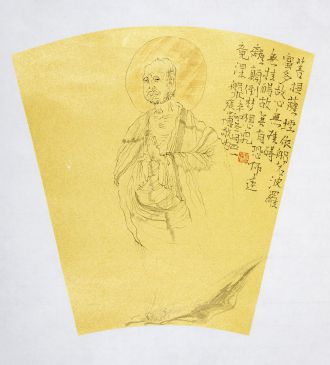 菩提薩埵依般若波羅
蜜多故心無罣礙
無罣礙故無有恐怖遠
離顛倒夢想究
竟涅槃